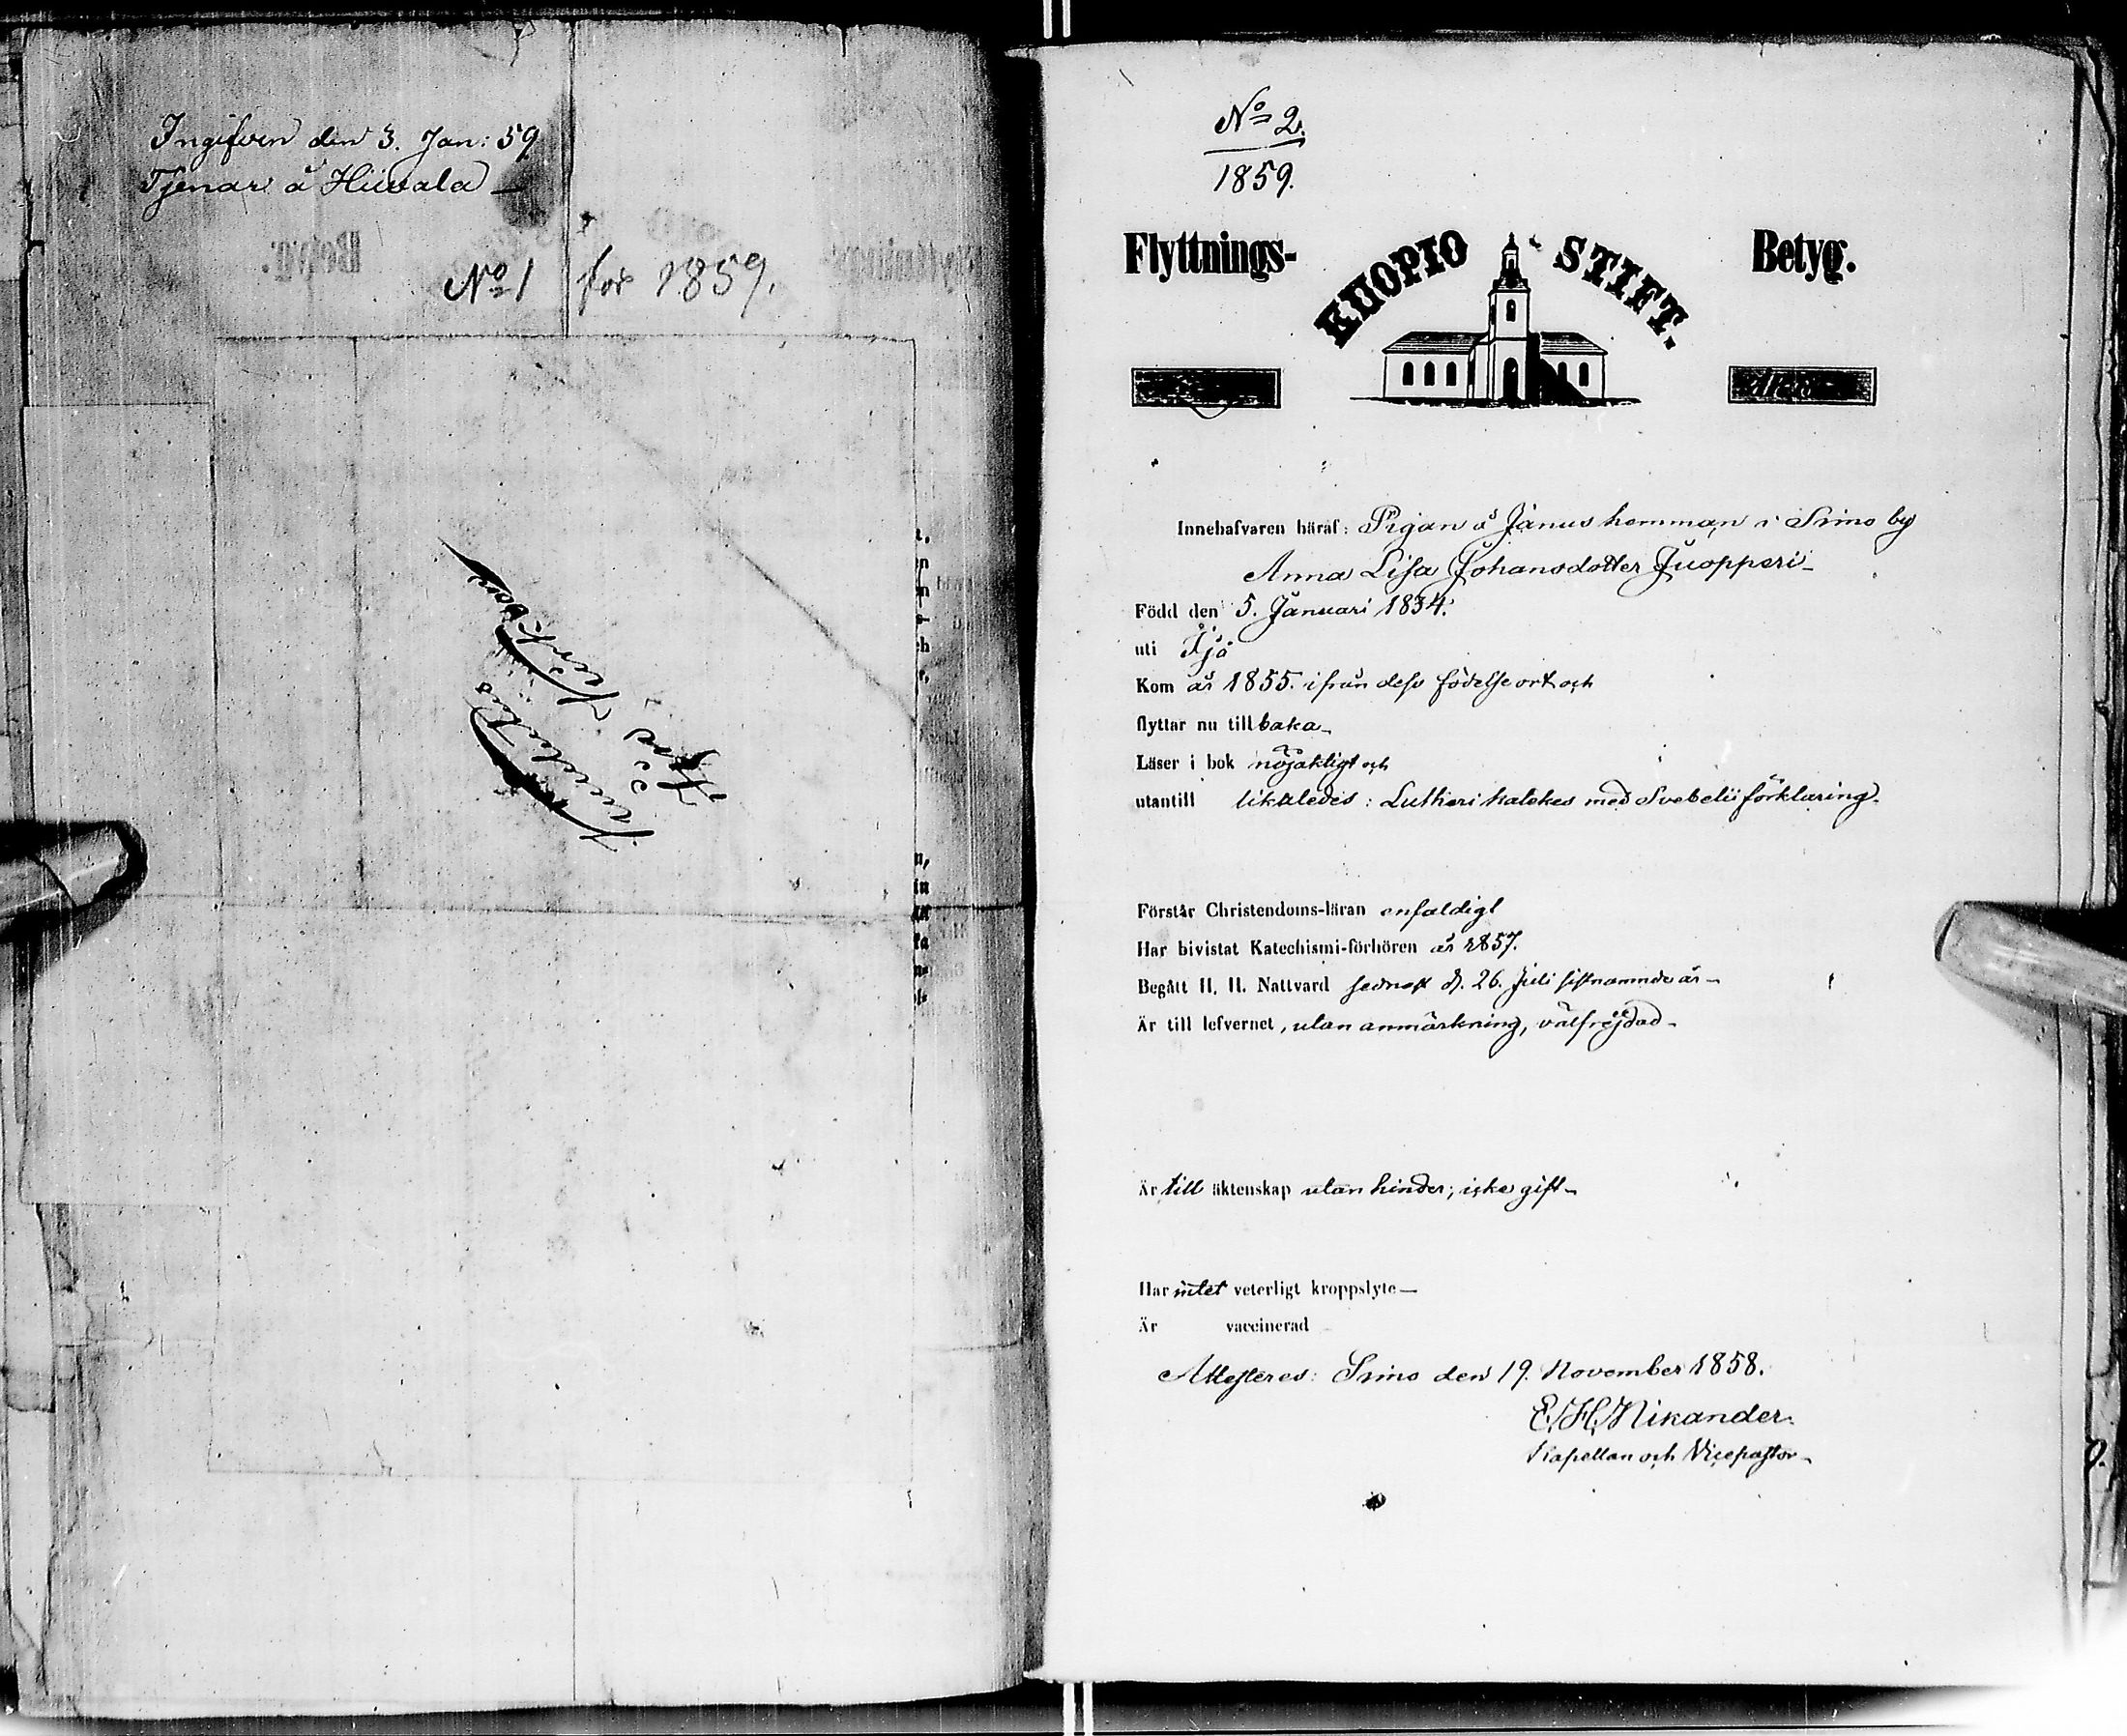 Ingifven den 3. Jan: 59
Tjenar å Hiivala
No 1 för 1859.
No 2.
1859.
Flyttnings- KUOPIO STIFT. Betyg.
Innehafvaren häraf: Pigan å Jänus hemman i Simo by
Anna Lisa Johansdotter Juopperi
Född den 5. Januari 1834.
uti Ijå
Kom år 1855. ifrån dess födelseort och
flyttar nu tillbaka
Läser i bok nöjaktigt och
utantill likaledes: Lutheri katekes med Svebelii förklaring.
Förstår Christendoms-läran enfaldigt
Har bivistat Katechismi-förhören år 1857.
Begått H. H. Nattvard sednast d. 26. Juli sistnämnde år
Är till lefvernet, utan anmärkning, välfrejdad
Är till äktenskap utan hinder; icke gift
Har intet veterligt kroppslyte
Är vaccinerad
Attesteres: Simo den 19. November 1858.
E. H. Nikander
Kapellan och Vicepastor